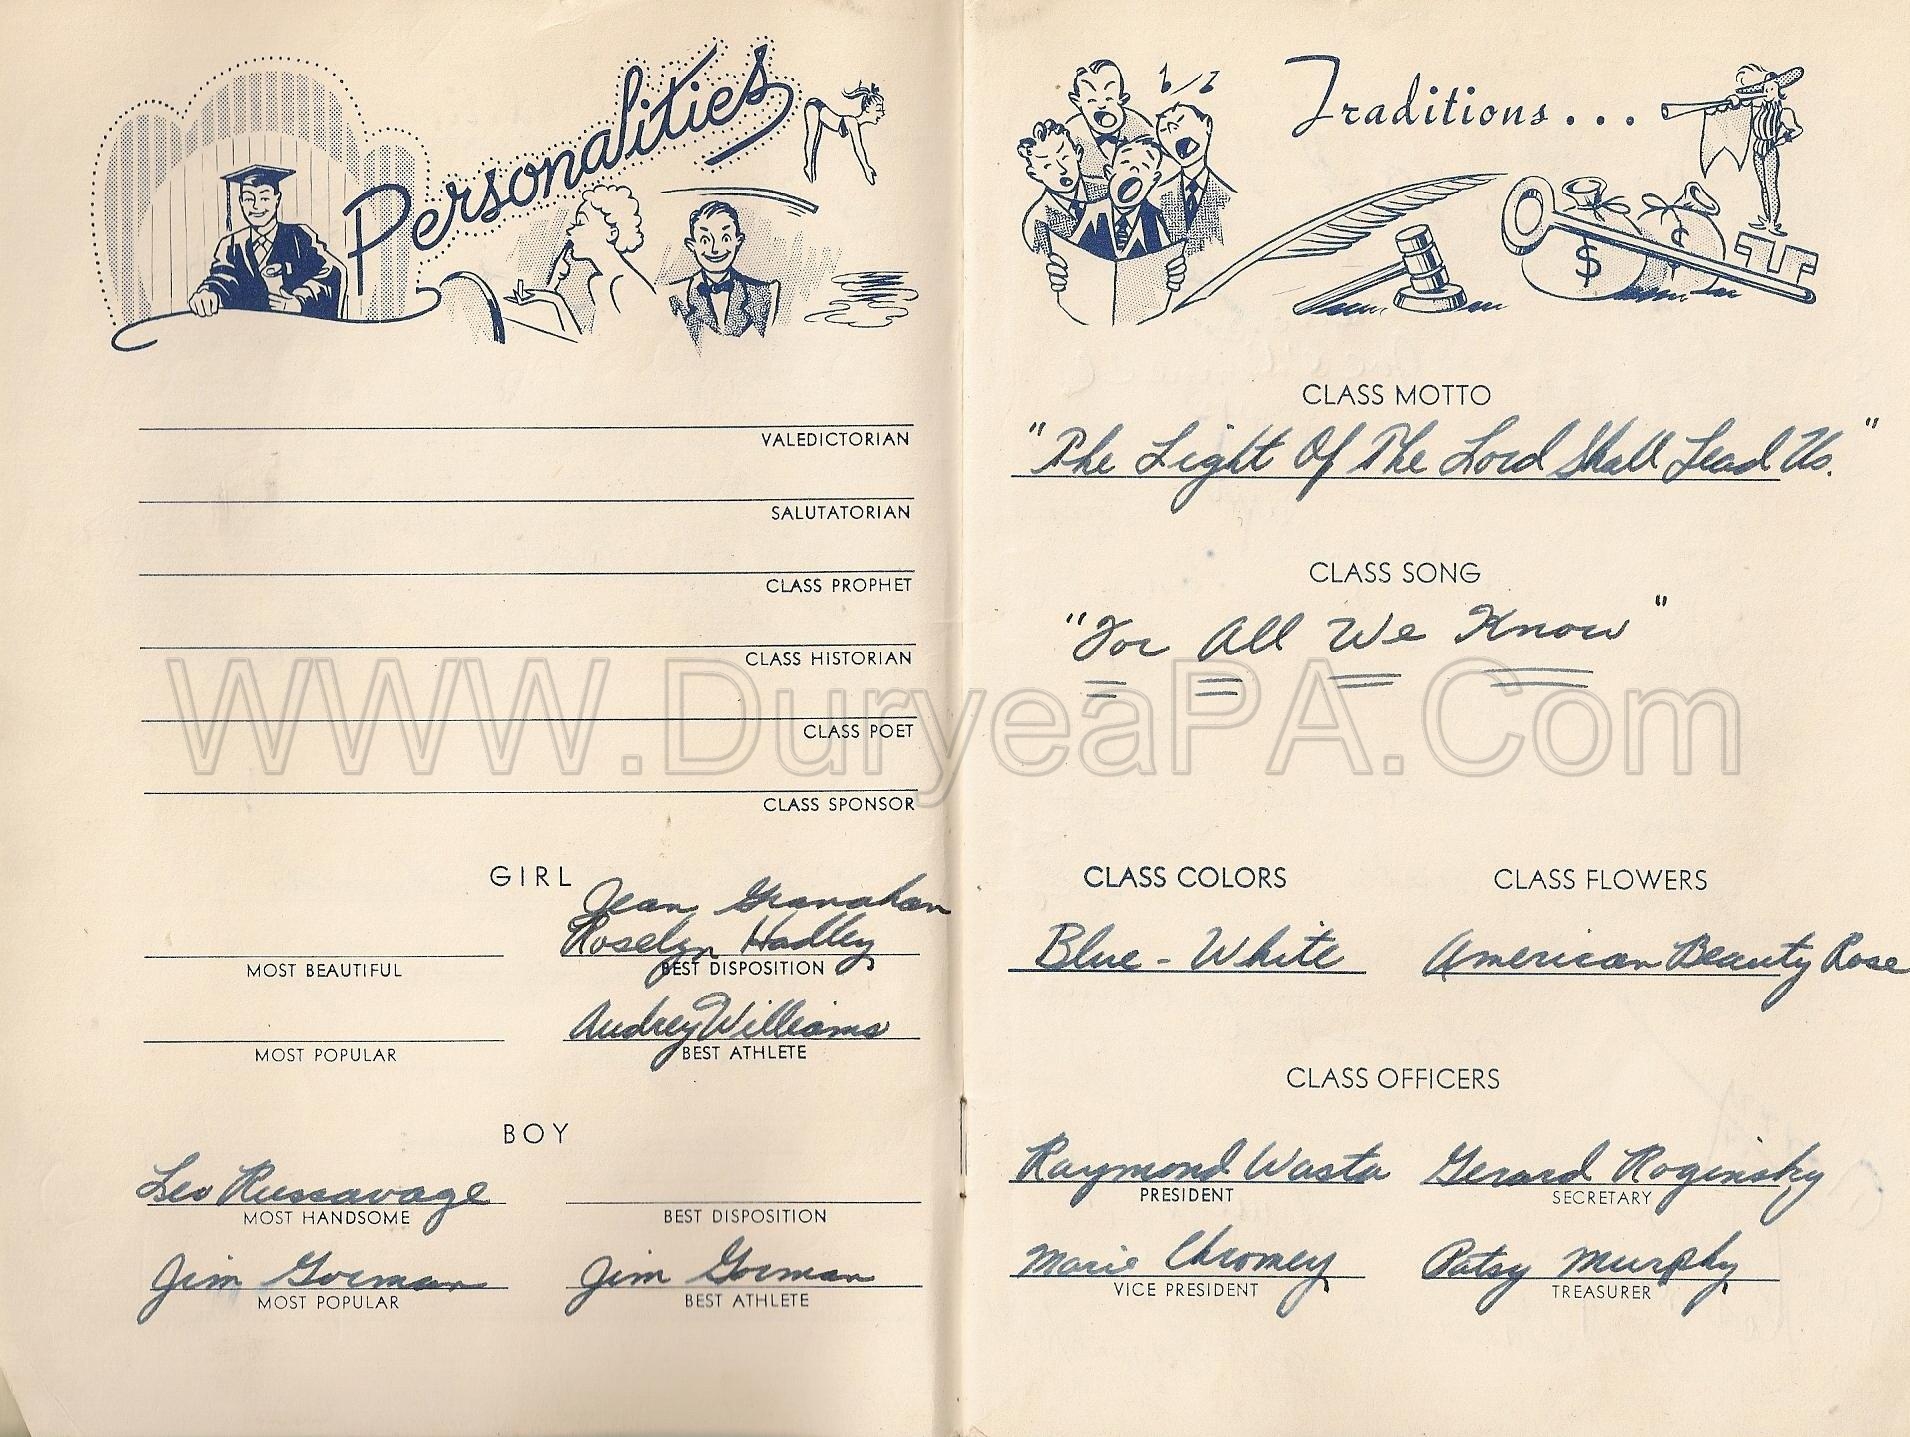 Personalities
VALEDICTORIAN
SALUTATORIAN
CLASS PROPHET
CLASS HISTORIAN
CLASS POET
CLASS SPONSOR
GIRL
Jean Granahan
Roselyn Hadley
MOST BEAUTIFUL BEST DISPOSITION
Audrey Williams
MOST POPULAR BEST ATHLETE
BOY
Leo Russavage
MOST HANDSOME BEST DISPOSITION
Jim Gorman Jim Gorman
MOST POPULAR BEST ATHLETE
Traditions...
$ $
CLASS MOTTO
"The Light Of The Lord Shall Lead Us."
CLASS SONG
"For All We Know"
CLASS COLORS CLASS FLOWERS
Blue - White American Beauty Rose
CLASS OFFICERS
Raymond Wasta Gerard Roginsky
PRESIDENT SECRETARY
Marie Chromey Patsy Murphy
VICE PRESIDENT TREASURER
WWW.DuryeaPA.Com